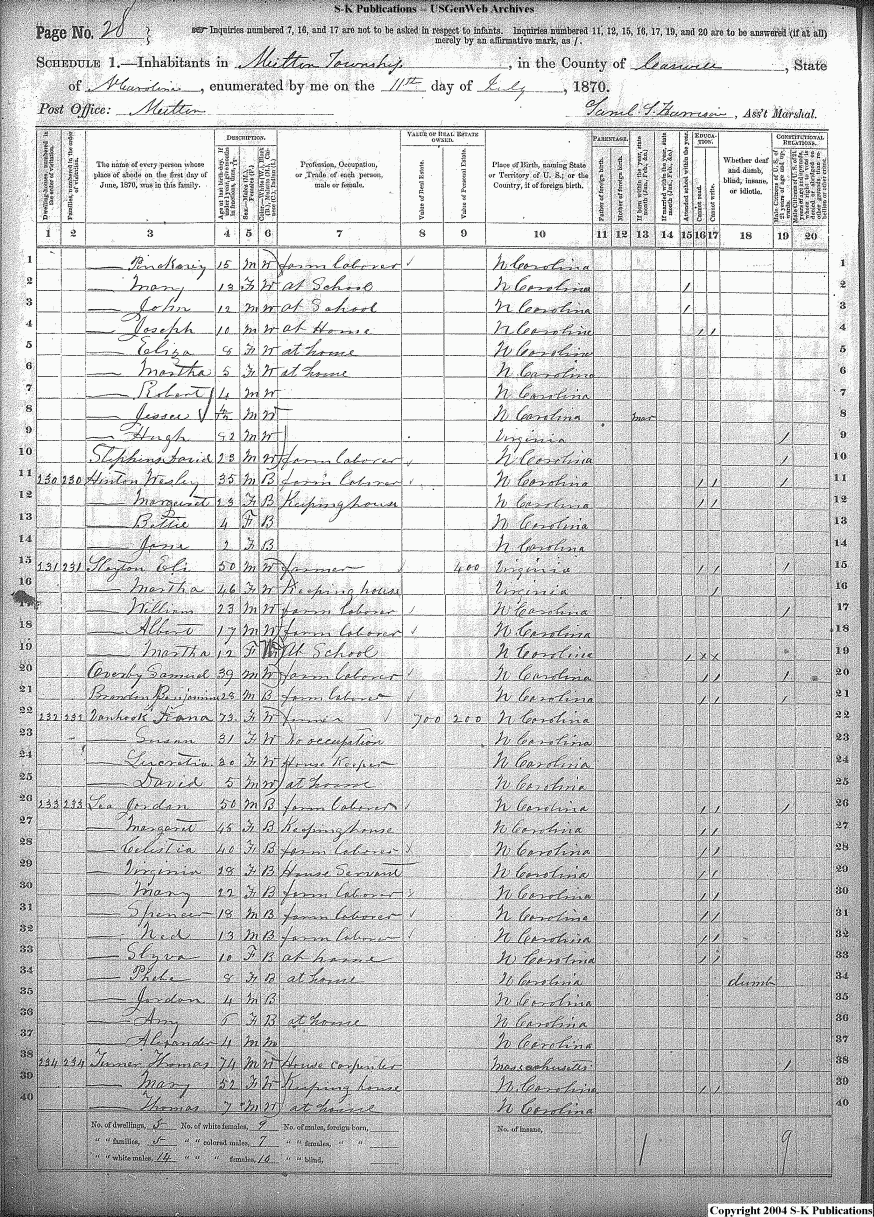 S-K Publications -- USGenWeb Archives
Page No. 28
Inquiries numbered 7, 16, and 17 are not to be asked in respect to infants. Inquiries numbered 11, 12, 15, 16, 17, 19, and 20 are to be answered (if at all) merely by an affirmative mark, as /.
SCHEDULE 1.—Inhabitants in Milton Township, in the County of Caswell, State
of N Carolina, enumerated by me on the 11th day of July, 1870.
Post Office: Milton
Saml. S. Harrison, Ass't Marshal.
DESCRIPTION. VALUE OF REAL ESTATE OWNED. PARENTAGE. EDUCATION. CONSTITUTIONAL RELATIONS.
Dwelling-houses, numbered in the order of visitation.
Families, numbered in the order of visitation.
The name of every person whose place of abode on the first day of June, 1870, was in this family.
Profession, Occupation, or Trade of each person, male or female.
Value of Real Estate.
Value of Personal Estate.
Place of Birth, naming State or Territory of U. S.; or the Country, if of foreign birth.
Father of foreign birth.
Mother of foreign birth.
Attended school within the year.
Cannot read.
Cannot write.
Whether deaf and dumb, blind, insane, or idiotic.
1 2 3 4 5 6 7 8 9 10 11 12 13 14 15 16 17 18 19 20
1 —— 15 M W farm laborer N Carolina 1
2 —— Mary 13 F W at School N Carolina / 2
3 —— John 12 M W at School N Carolina / 3
4 —— Joseph 10 M W at Home N Carolina / / 4
5 —— Eliza 8 F W at home N Carolina 5
6 —— Martha 5 F W at home N Carolina 6
7 —— Robert 4 M W N Carolina 7
8 —— Jessee M W N Carolina Mar 8
9 —— Hugh 82 M W Virginia / 9
10 Stephens David 23 M W farm laborer N Carolina / 10
11 230 230 Hinton Wesley 35 M B farm laborer N Carolina / / / 11
12 —— Margaret 23 F B Keeping house N Carolina / / 12
13 —— Bettie 4 F B N Carolina 13
14 —— Jane 2 F B N Carolina 14
15 231 231 Slayton Eli 50 M W farmer 400 Virginia / / / 15
16 —— Martha 46 F W Keeping house Virginia / 16
17 —— William 23 M W farm laborer N Carolina / 17
18 —— Albert 17 M W farm laborer N Carolina 18
19 —— Martha 12 F W At School N Carolina / x x 19
20 Overby Samuel 39 M W farm laborer N Carolina / / / 20
21 Brandon Benjamin 28 M B farm laborer N Carolina / / / 21
22 232 232 Vanhook 72 F W farmer 700 200 N Carolina 22
23 —— Susan 31 F W No occupation N Carolina 23
24 —— Lucretia 30 F W House Keeper N Carolina 24
25 —— David 5 M W at home N Carolina 25
26 233 233 Lea Jordan 50 M B farm laborer N Carolina / / / 26
27 —— Margaret 45 F B Keeping house N Carolina / / 27
28 —— Celistia 40 F B farm laborer N Carolina / / 28
29 —— Virginia 28 F B House Servant N Carolina / / 29
30 —— Mary 22 F B farm laborer N Carolina / / 30
31 —— Spencer 18 M B farm laborer N Carolina / / 31
32 —— Ned 13 M B farm laborer N Carolina / / 32
33 —— Slyva 10 F B at home N Carolina / / 33
34 —— Phebe 8 F B at home N Carolina dumb 34
35 —— Jordon 4 M B N Carolina 35
36 —— Amy 6 F B at home N Carolina 36
37 —— Alexander 4 M M N Carolina 37
38 234 234 Turner Thomas 74 M W House carpenter Massachusetts / 38
39 —— Mary 52 F W Keeping house N Carolina / / 39
40 —— Thomas 7 M W at house N Carolina 40
No. of dwellings, 5 No. of white females, 9 No. of males, foreign born, No. of insane,
" " families, 5 " " colored males, 7 " " females, " " 1 9
" " white males, 14 " " " females, 10 " " blind,
Copyright 2004 S-K Publications